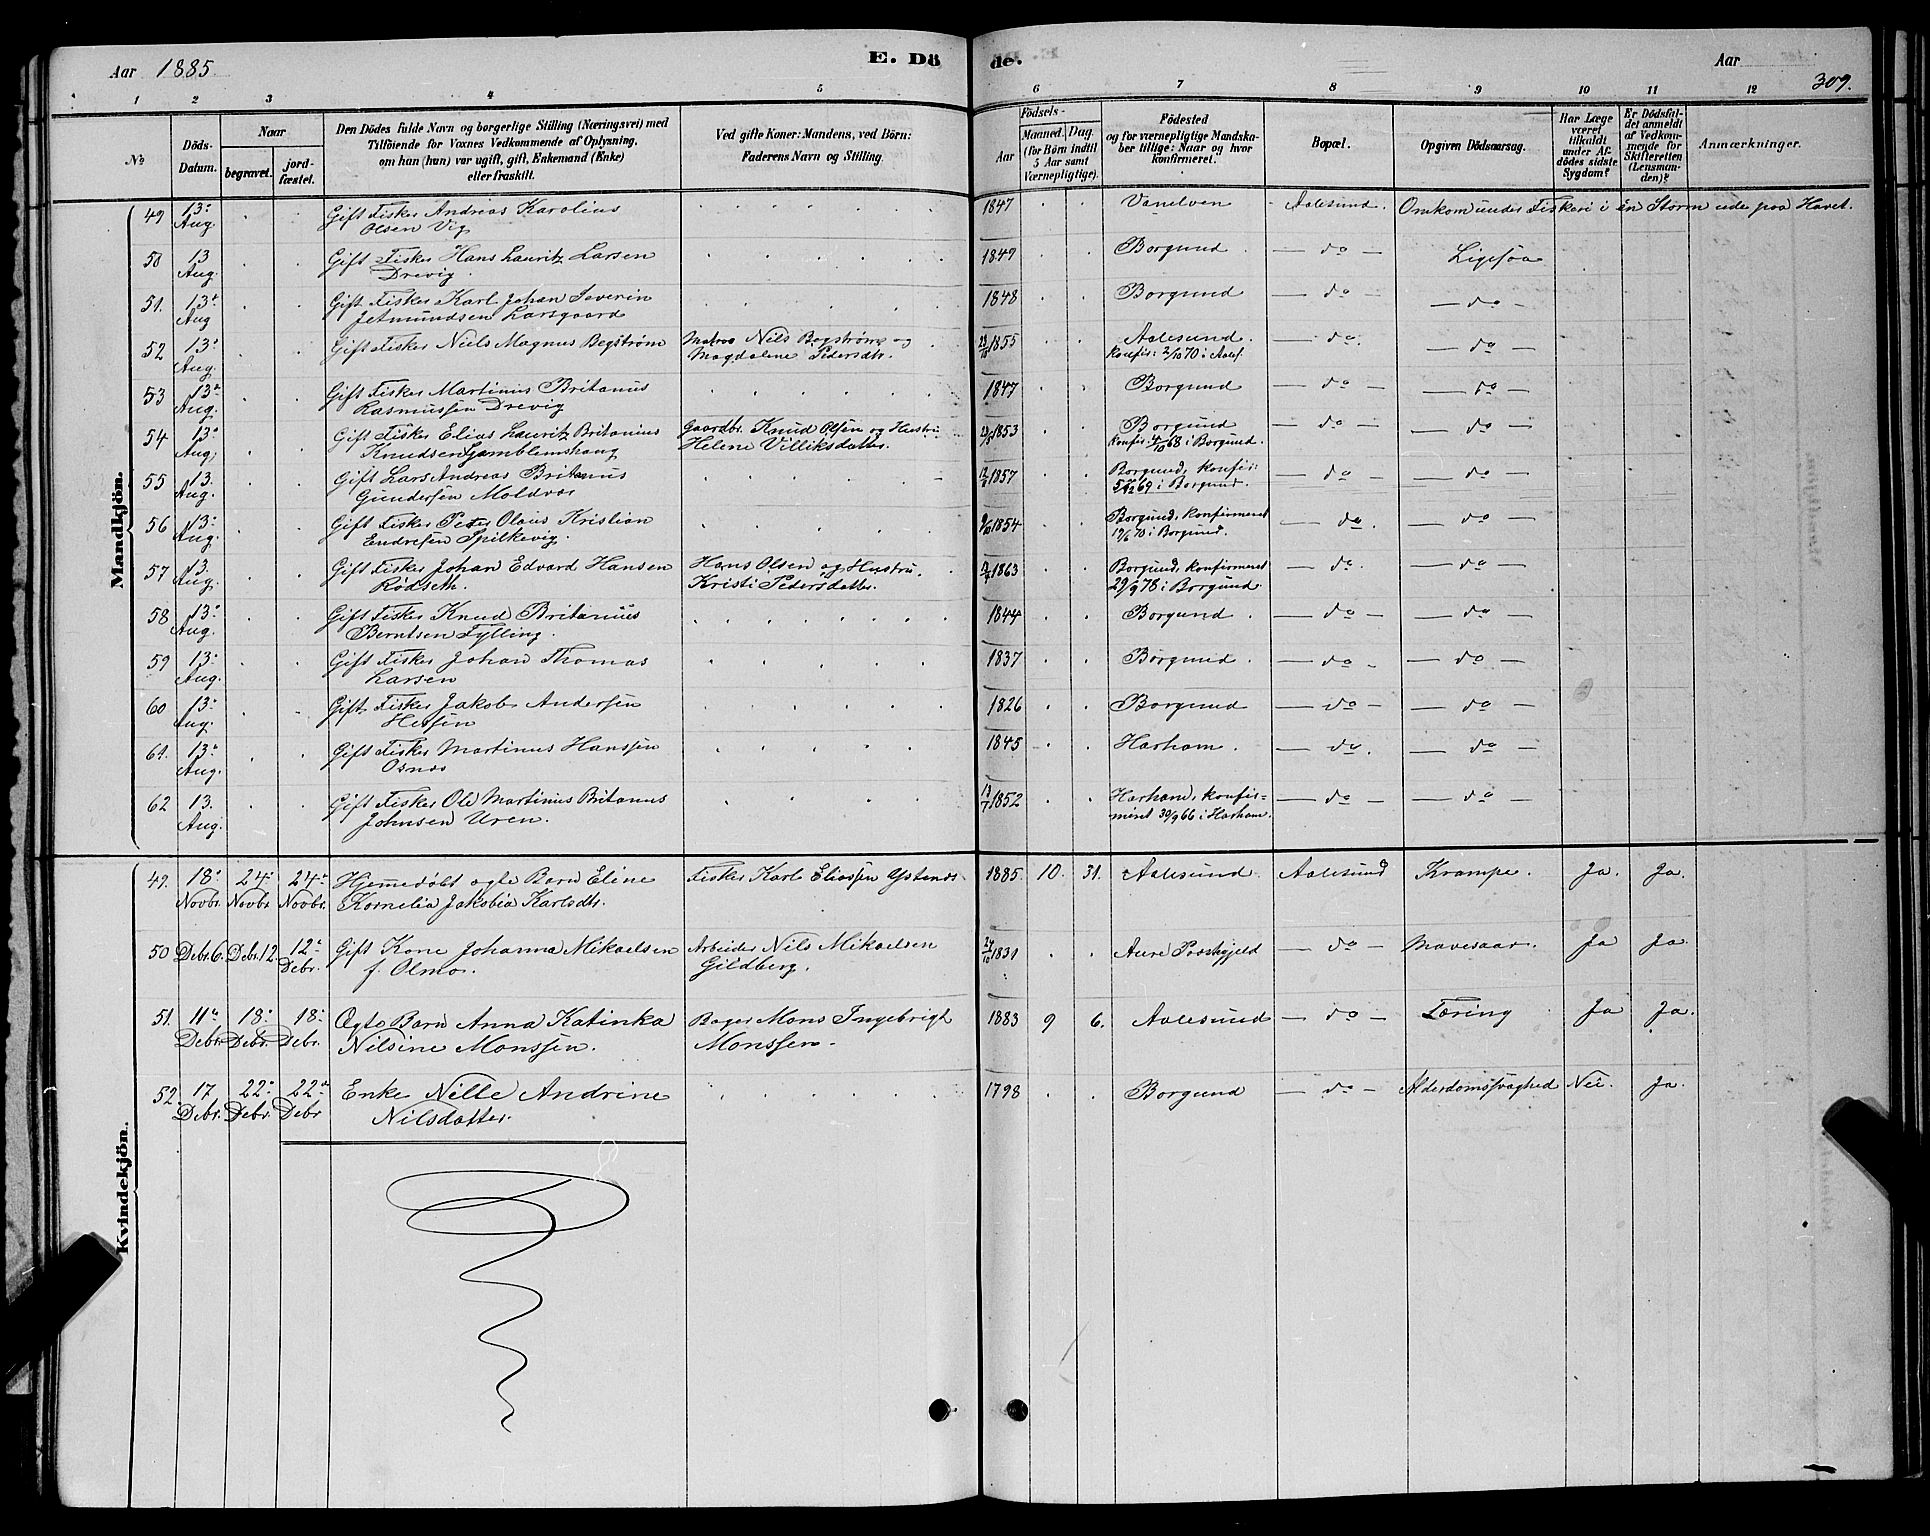 Aar 1885.
E. Dö
de.
Aar
309.
1 2 3 4 5 6 7 8 9 10 11 12
No
Döds-Datum.
Naar
begravet.
jord-fæstet.
Den Dödes fulde Navn og borgerlige Stilling (Næringsvei) med
Tilföiende for Voxnes Vedkommende af Oplysning,
om han (hun) var ugift, gift, Enkemand (Enke)
eller fraskilt.
Ved gifte Koner: Mandens, ved Börn:
Faderens Navn og Stilling.
Födsels-
Aar
Maaned. Dag.
(for Börn indtil
5 Aar samt
Værnepligtige).
Födested
og for værnepligtige Mandska-
ber tillige: Naar og hvor
konfirmeret.
Bopæl.
Opgiven Dödsaarsag.
Har Læge
været
tilkaldt
under Af-
dödes sidste
Sygdom?
Er Dödsfal-
det anmeldt
af Vedkom-
mende for
Skifteretten
(Lensman-
den)?
Anmærkninger.
Mandkjön.
49 13 Aug. Gift Fisker Andreas Karolius 1847 Vanelven Aalesund. Omkom under Fiskeri i en Storm ude paa Havet.
Olsen Vig
50 13 Aug. Gift Fisker Hans Lauritz Larsen 1849 Borgund do Ligesaa
Drevig.
51. 13 Aug Gift Fisker Karl Johan Severin 1848 Borgund do do
Jetmundsen Larsgaard
52 13 Aug. Gift Fisker Niels Magnus Begström Matros Nils Bogström og 1855 Aalesund. do do
Magdalene Pedersdtr. Konfir: 2/10 70 i Aalef.
53 13 Aug. Gift Fisker Martinus Britanus 1847 Borgund do do
Rasmussen Drevig
54 13 Aug. Gift Fisker Elias Lauritz Britanius Gaardbr. Knud Olsen og Hustru 1853 Borgund do do
Knudsen Gamblemshaug Helene Villiksdatter. Konfir: 4/10 68 i Borgund.
55 13. Aug. Gift Lars Andreas Britanus 1857 Borgund, konfir: do do
Gundersen Moldvær i Borgund.
56 13 Aug. Gift Fisker Peter Olaus Kristian 1854 Borgund, konfirmeret do. do
Endresen Spilkevig. i Borgund.
57 13. Aug. Gift Fisker Johan Edvard Hansen Hans Olsen og Hustru 1863 Borgund, konfirmeret do. do
Rödseth. Kristi Pedersdatter. 29/9 78 i Borgund.
58 13 Aug. Gift Fisker Knud Britanius 1844 Borgund do do
Berntsen Fylling.
59 13 Aug. Gift Fisker Johan Thomas 1837 Borgund. do do
Larsen
60 13 Aug. Gift Fisker Jakob Andersen 1826 Borgund do do
Hessen
61. 13 Aug. Gift Fisker Martinus Hanssen 1845 Harham. do. do
Osnæs
62 13. Aug. Gift Fisker Ole Martinus Britanus 1852 Harham, konfir= do do
Johnsen Uren. meret 30/9 66 i Harham.
Kvindekjön.
49. 18 Novbr. 24 Novbr. 24 Novbr. Hjemmedøbt ægte Barn Eline Fisker Karl Eliassen Ystenæs 1885. 10. 31. Aalesund. Aalesund Krampe. Ja. Ja.
Kornelia Jakobia Karlsdtr.
50 Debr. 6. Debr. 12. 12 Debr. Gift Kone Johanna Mikaelsen Arbeider Nils Mikaelsen 24/10 1831 Aure Præstgjeld do Mavesaar. Ja Ja.
f. Olmo. Gildberg.
51. 11 Debr. 18 Debr. 18 Debr. Ægte Barn Anna Katinka Bager Mons Ingebrigt 1883 9 6. Aalesund do Tæring Ja Ja.
Nilsine Monssen. Monssen.
52. 17 Debr. 22 Debr. 22 Debr Enke Nille Andrine 1798 Borgund do Alderdomssvaghed Nei. Ja.
Nilsdatter.